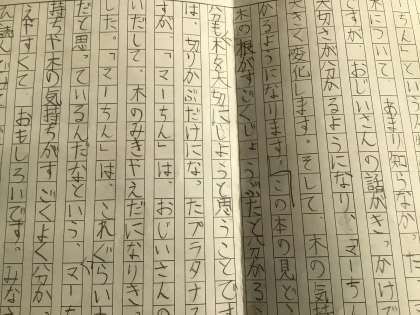 木について、あまり知らなか
ですが、おじいさんの話がきっかけで
大切さが分かるようになり、マーち
大きく変化します。そして、木の気持
かるようになります。この本の見ど
木の根がすごくじょうぶだと分かる
も木を大切にしようと思うことです
は、切りかぶだけになったプラタナス
すが、「マーちん」は、おじいさんの
いだして、木のみきやえだになりき
した。「マーちん」は、これぐらい
だと思っているんだなという、マーち
持ちや木の気持ちがすごくよく分か
やすくて、おもしろいです。みな